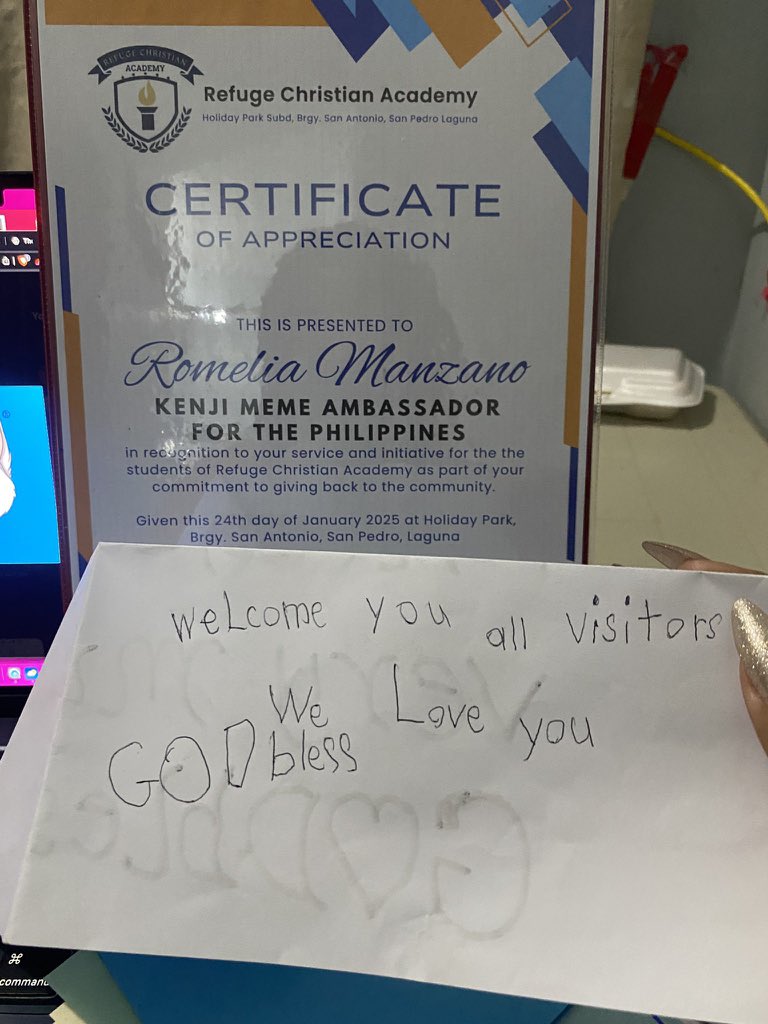 REFUGE CHRISTIAN
ACADEMY
Refuge Christian Academy
Holiday Park Subd, Brgy. San Antonio, San Pedro Laguna
CERTIFICATE
OF APPRECIATION
THIS IS PRESENTED TO
Romelia Manzano
KENJI MEME AMBASSADOR
FOR THE PHILIPPINES
in recognition to your service and initiative for the the
students of Refuge Christian Academy as part of your
commitment to giving back to the community.
Given this 24th day of January 2025 at Holiday Park,
Brgy. San Antonio, San Pedro, Laguna
weLcome you all visitors
We Love you
GOD bless
⌘
command